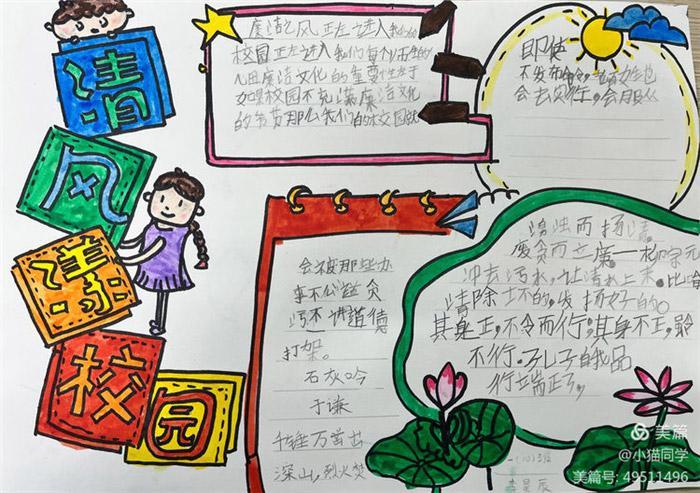 清
风
漾
校
园
廉洁之风正在进入我们的
校园正在进入我们每个
廉洁文化的重要性在于
如果校园不充满廉洁文化
的那么我们的校园就
即使
不发布命令,老百姓也
会去实行,会服从
会被那些办
事不公道贪
污不讲道德
打架。
石灰吟
于谦
千锤万凿出
深山,烈火焚
浊而扬清
废贪而立廉一柳宗元
冲去污水,让清水上来。比喻
清除坏的,发扬好的。
其身正,不令而行;其身不正,虽
不行.孔子自我品
行端正了,
一(10)班
星辰
美篇
@小猫同学
美篇号: 49511496